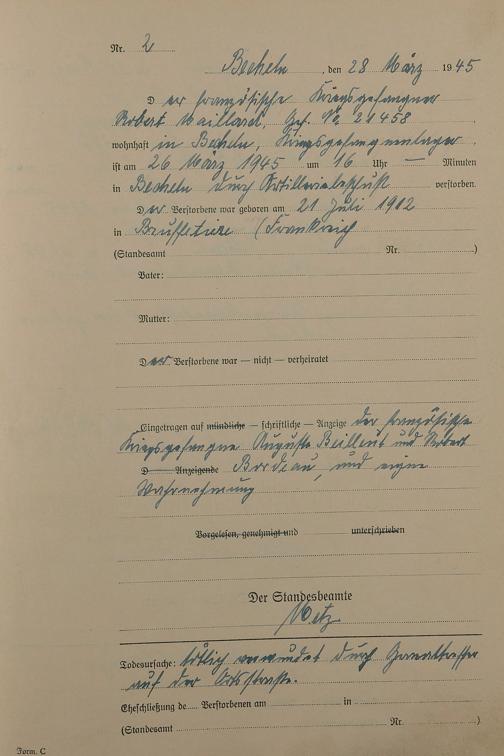 Nr. 2
Becheln, den 28 März 1945
Der französische Kriegsgefangner
Robert Maillard, Gef. No 21458
wohnhaft in Becheln, Kriegsgefangnenlager,
ist am 26 März 1945 um 16 Uhr — Minuten
in Becheln durch Artilleriebeschuß verstorben.
Der Verstorbene war geboren am 21 Juli 1912
in (Frankreich
(Standesamt Nr. )
Vater:
Mutter:
Der Verstorbene war — nicht — verheiratet
Eingetragen auf mündliche — schriftliche — Anzeige der französische
Kriegsgefangne Auguste und Robert
D Anzeigende Bordeau, und eigne
Wahrnehmung
Vorgelesen, genehmigt und unterschrieben
Der Standesbeamte
Metz
Todesursache: tötlich verwundet durch Granattreffer
auf der Ortsstraße.
Eheschließung de Verstorbenen am in
(Standesamt Nr. )
Form. C